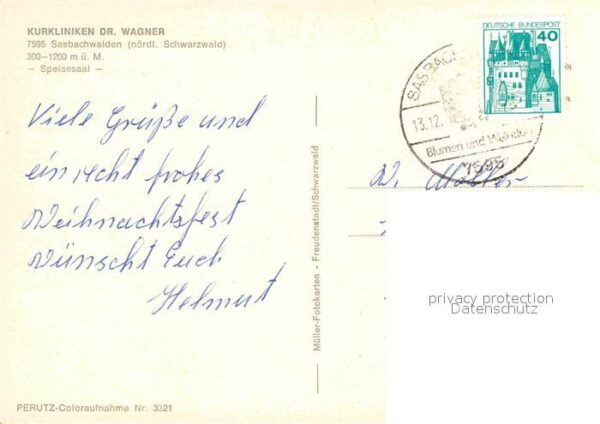 KURKLINIKEN DR. WAGNER
7595 Sasbachwalden (nördl. Schwarzwald)
300—1200 m ü. M.
— Speisesaal —
Viele Grüße und
ein recht frohes
Weihnachtsfest
wünscht Euch
Helmut
PERUTZ-Coloraufnahme Nr. 3321
Müller-Fotokarten - Freudenstadt/Schwarzwald
DEUTSCHE BUNDESPOST
40
SASBACH
13.12.
Blumen und Weindorf
7595
W.
privacy protection
Datenschutz